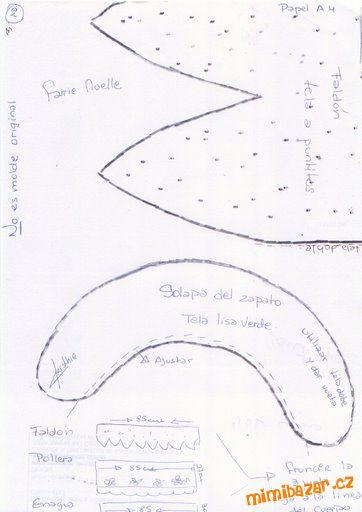 2
3
Papel A4
Fairie Noelle
Faldón
tela a puntitos
No es molde original
tela doble
Solapa del zapato
Tela lisa verde
Utilizar tela doble
y dar vuelta
Ajustar
Faldón
85cm
Pollera
85cm
Enagua
85
fruncir la
a la línea
del cuerpo
mimibazar.cz